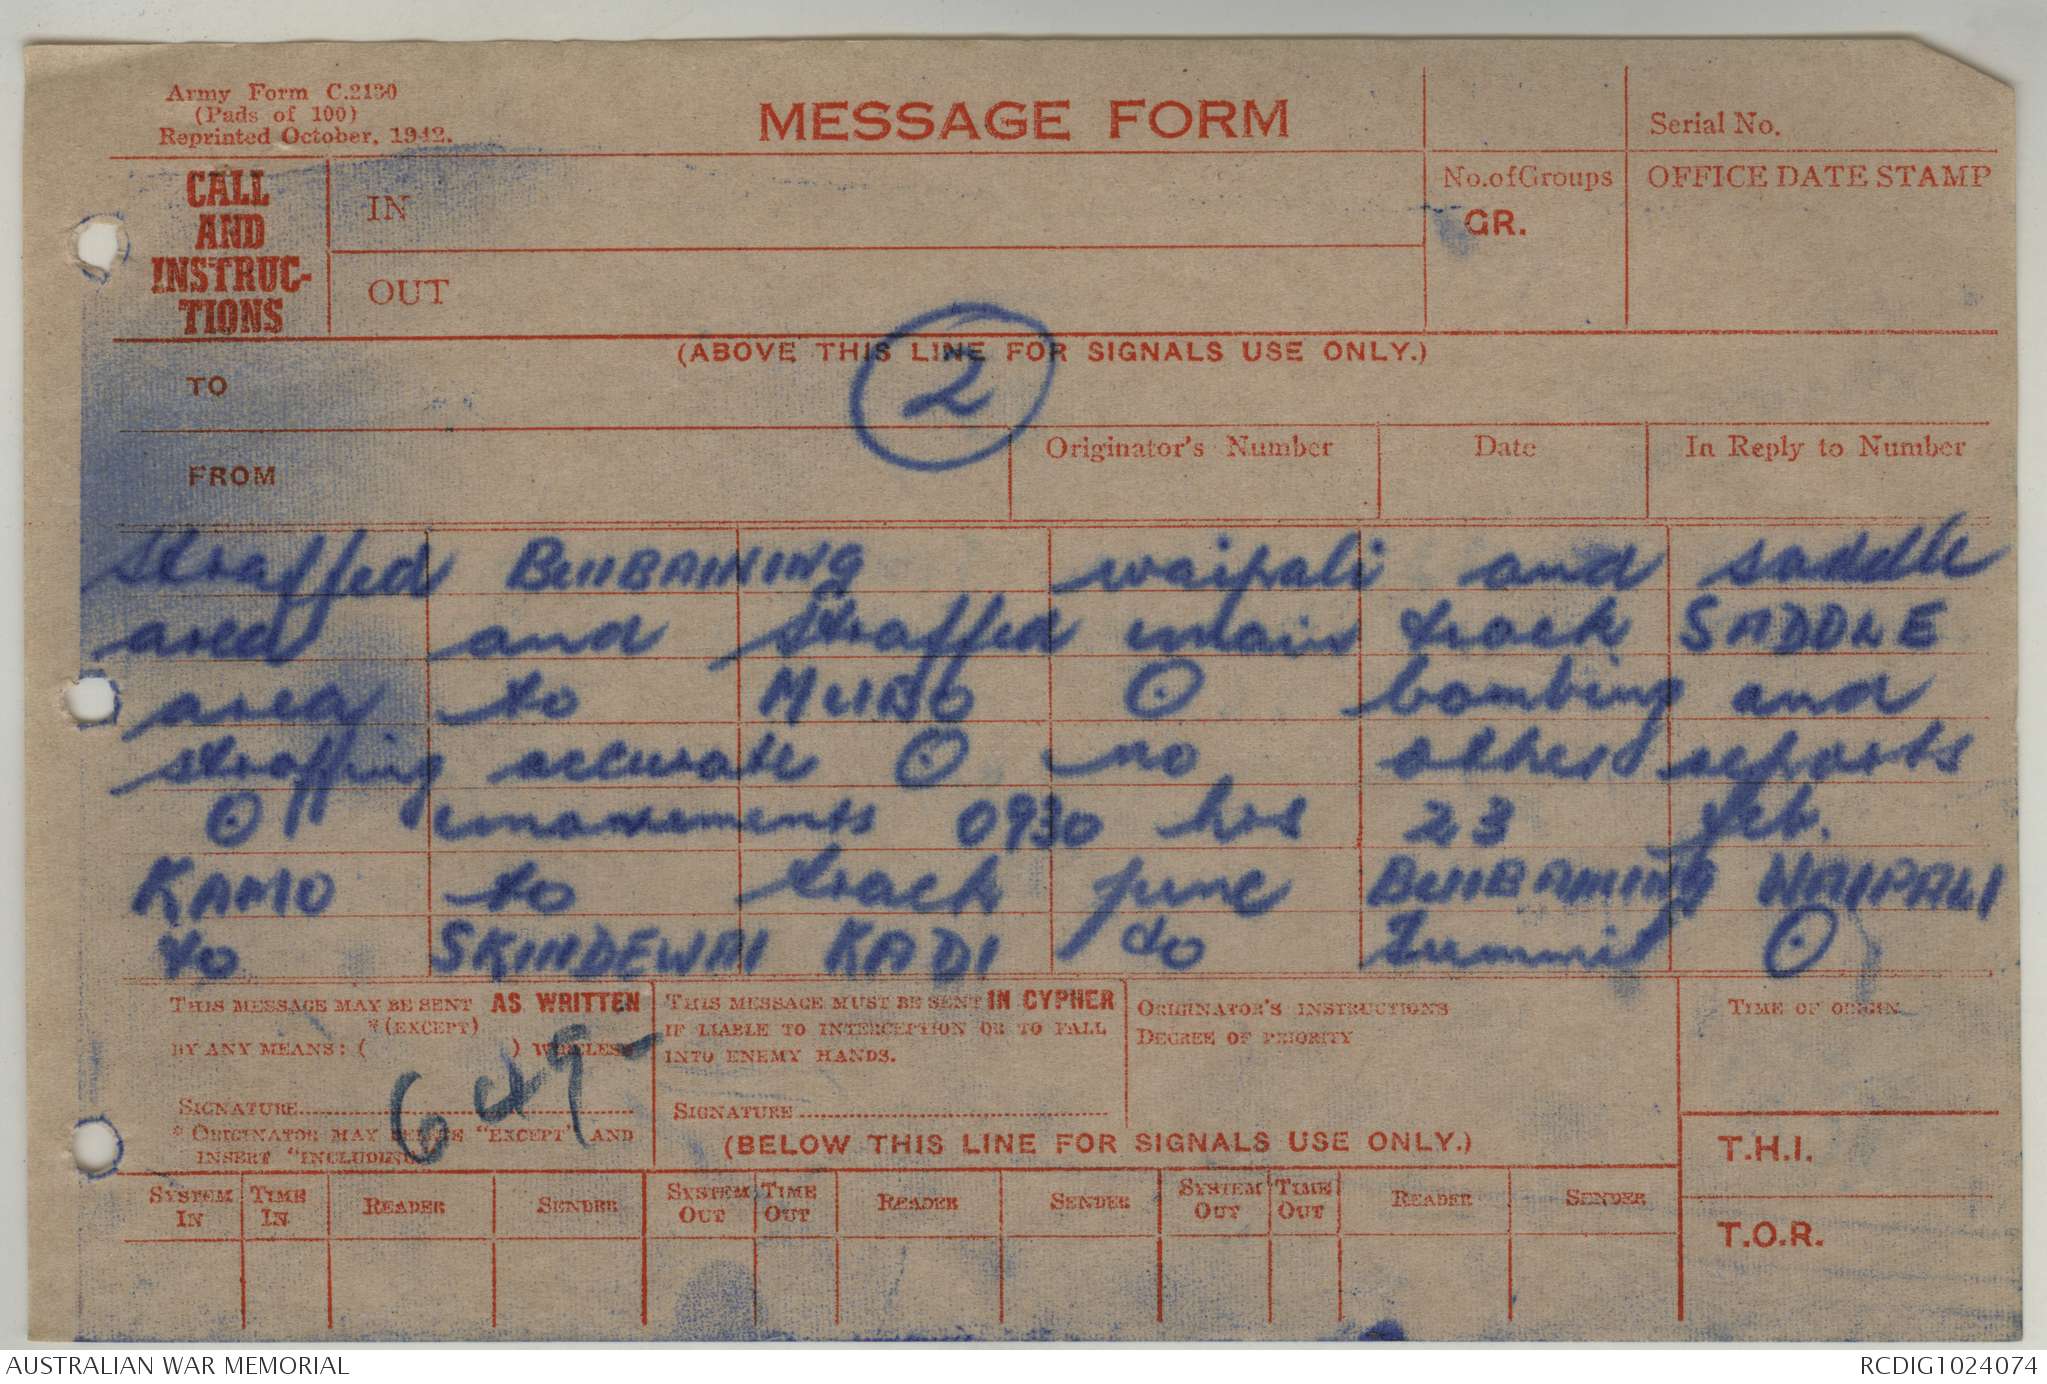 Army Form C.2130
(Pads of 100)
Reprinted October, 1942.
MESSAGE FORM
Serial No.
CALL
AND
INSTRUC-
TIONS
IN
OUT
No. of Groups
GR.
OFFICE DATE STAMP
(ABOVE THIS LINE FOR SIGNALS USE ONLY.)
TO
2
FROM
Originator's Number
Date
In Reply to Number
Straffed BUIBAINING waipali and saddle
area and straffed main track SADDLE
area to MUBO ⊙ bombing and
straffing accurate ⊙ no other reports
⊙ movements 0930 hrs 23 feb.
KAMO to track junc BUIBAINING WAIPALI
to SKINDEWAI KADI to Summit ⊙
THIS MESSAGE MAY BE SENT AS WRITTEN
*(EXCEPT)
BY ANY MEANS: ( ) WIRELESS
SIGNATURE
* ORIGINATOR MAY DELETE "EXCEPT" AND
INSERT "INCLUDING"
649
THIS MESSAGE MUST BE SENT IN CYPHER
IF LIABLE TO INTERCEPTION OR TO FALL
INTO ENEMY HANDS.
SIGNATURE
ORIGINATOR'S INSTRUCTIONS
DEGREE OF PRIORITY
TIME OF ORIGIN
(BELOW THIS LINE FOR SIGNALS USE ONLY.)
T.H.I.
T.O.R.
SYSTEM IN
TIME IN
READER
SENDER
SYSTEM OUT
TIME OUT
READER
SENDER
SYSTEM OUT
TIME OUT
READER
SENDER
AUSTRALIAN WAR MEMORIAL
RCDIG1024074